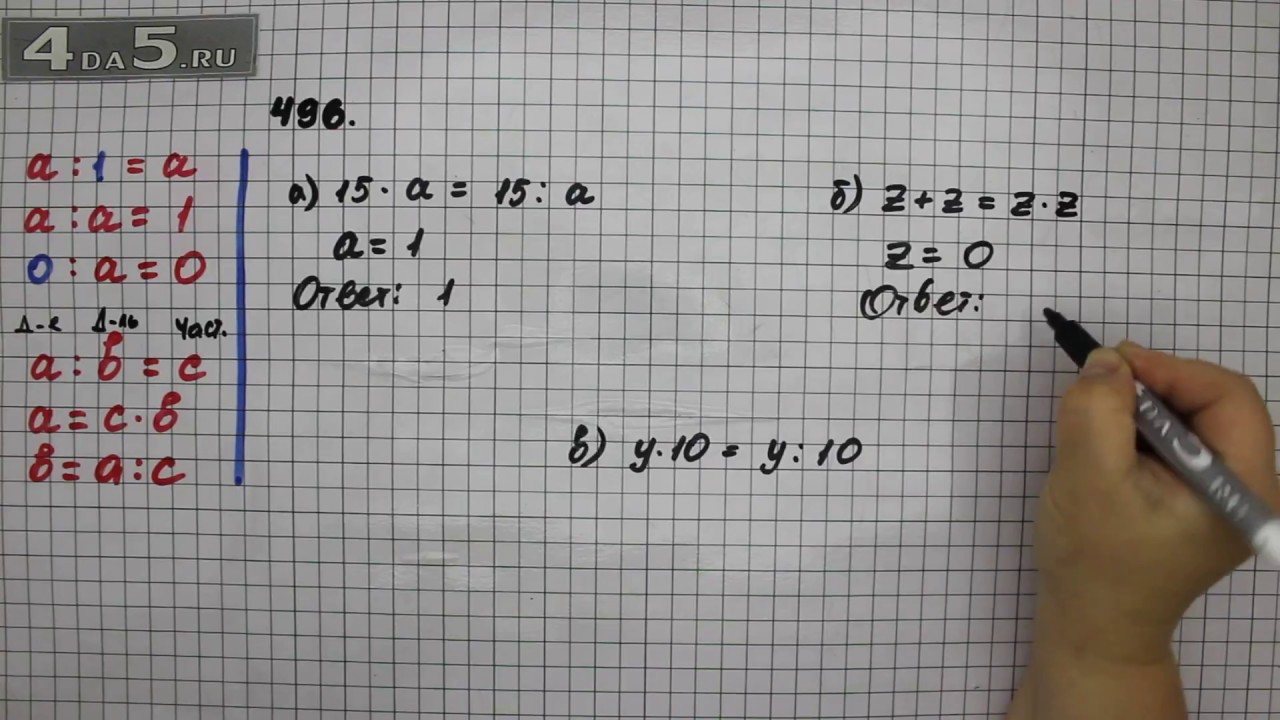 4DA5.RU
496.
a : 1 = a
a : a = 1
0 : a = 0
Д-е Д-ль Част.
a : b = c
a = c · b
b = a : c
а) 15 · a = 15 : a
a = 1
Ответ: 1
б) z + z = z · z
z = 0
Ответ:
в) y · 10 = y : 10